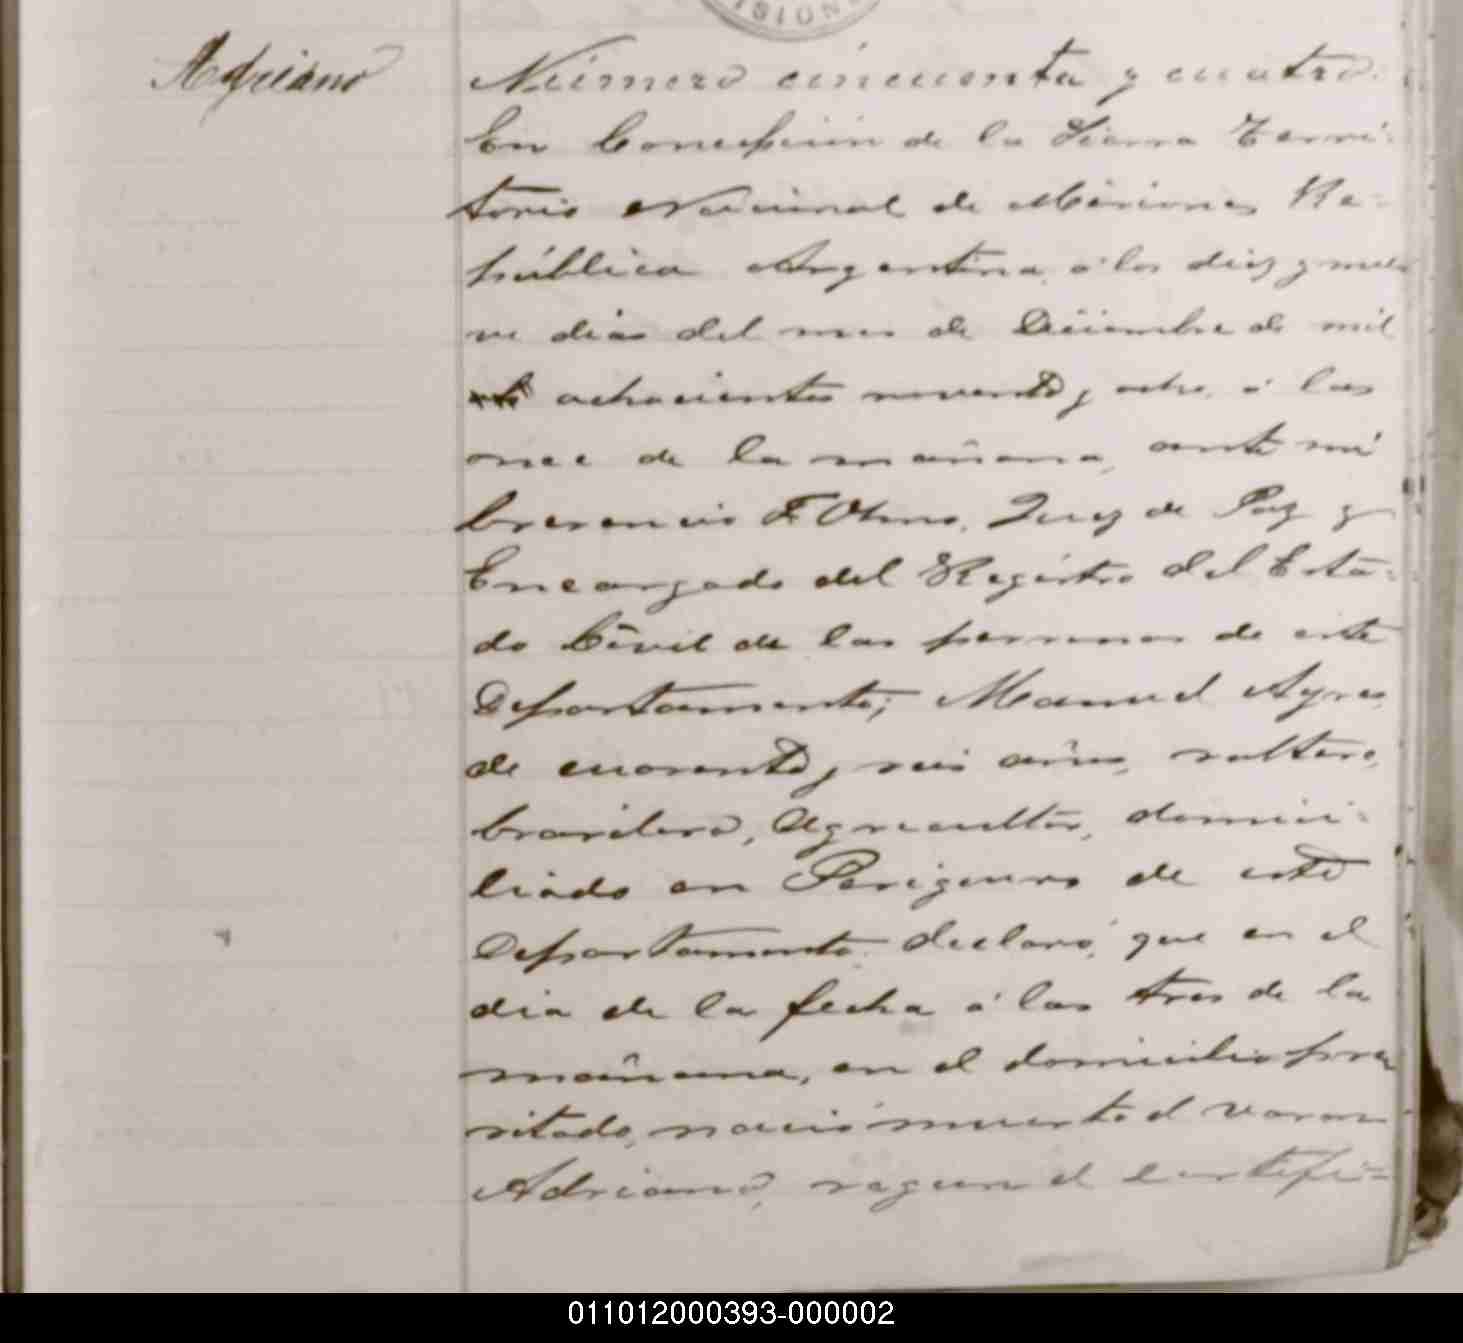 ISION
Adriano
Número cincuenta y cuatro.
En Concepción de la Sierra Terri-
torio Nacional de Misiones Re-
pública Argentina, á los diez y nue
ve dias del mes de Diciembre de mil
ochocientos noventa y ocho, á las
once de la mañana, ante mi
F. Olmo, Juez de Paz y
Encargado del Registro del Esta-
do Civil de las personas de este
Departamento; Manuel Ayres,
de cuarenta y seis años, soltero,
brasilero, Agricultor, domici-
liado en de este
Departamento declaró: que en el
dia de la fecha á las tres de la
mañana, en el domicilio pre
citado, nació muerto el varon
Adriano, segun el certifi-
011012000393-000002